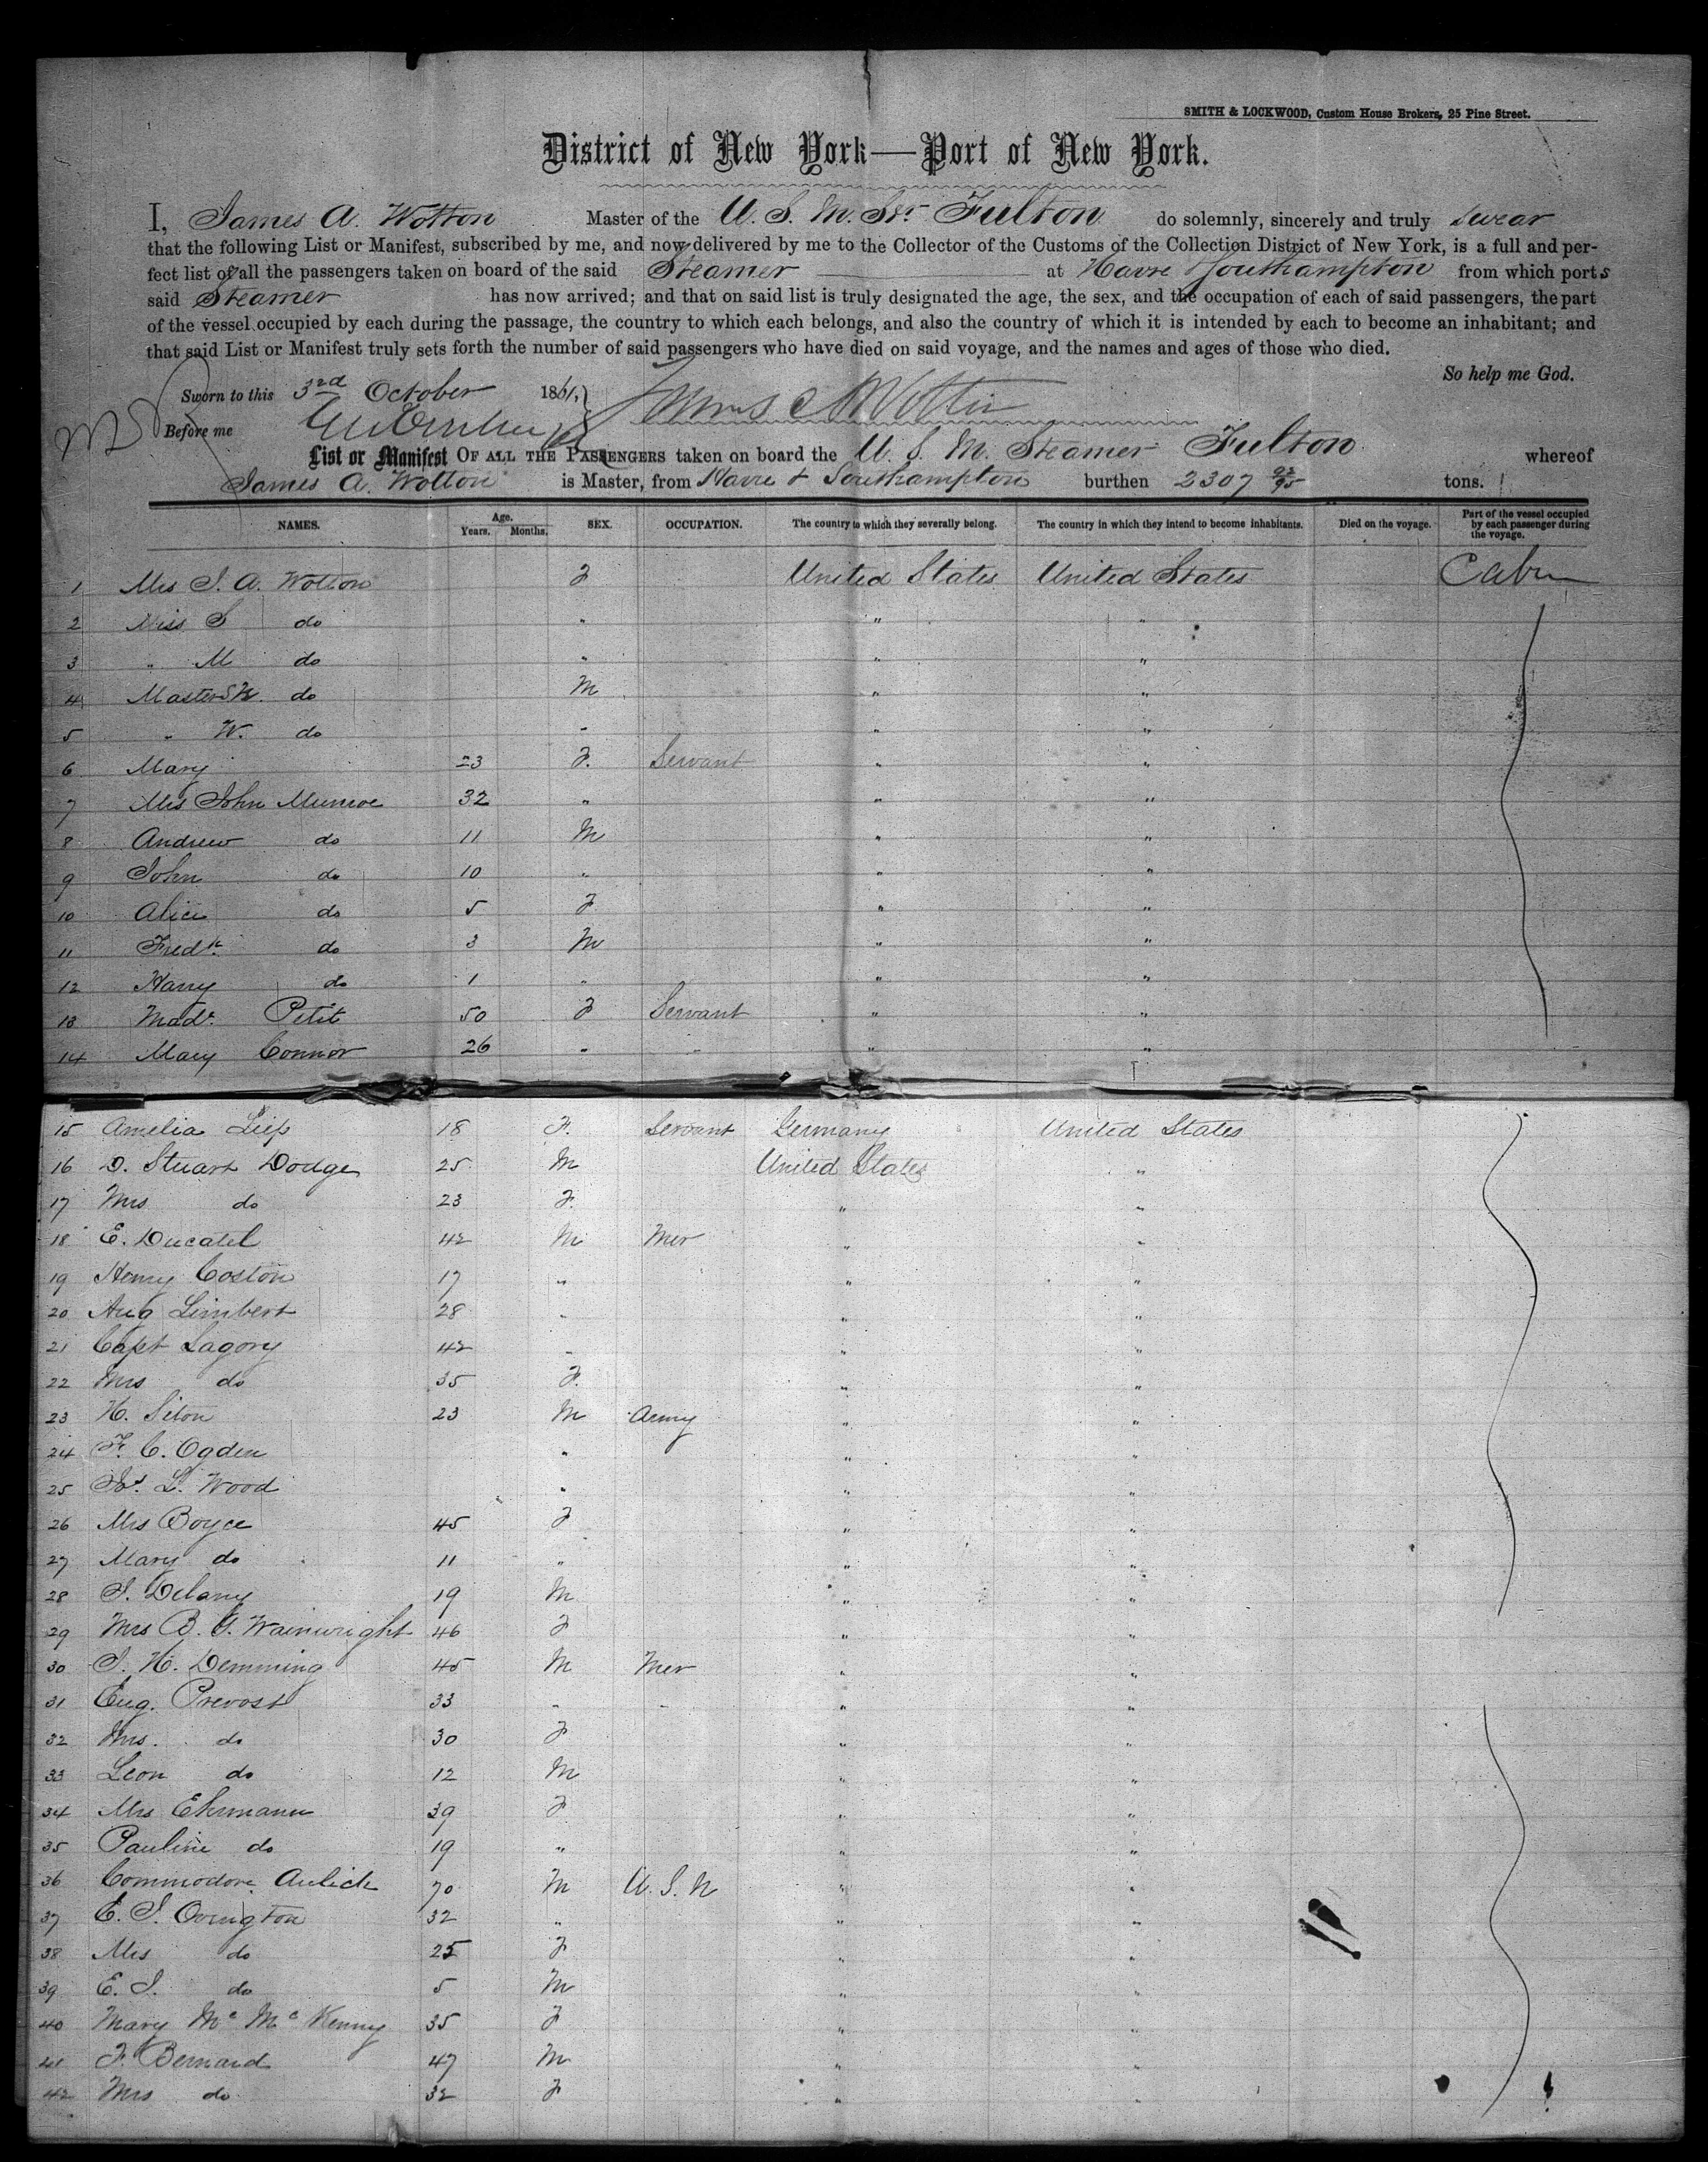 SMITH & LOCKWOOD, Custom House Brokers, 25 Pine Street.
District of New York—Port of New York.
I, James A. Wotton Master of the U. S. M. Str Fulton do solemnly, sincerely and truly swear
that the following List or Manifest, subscribed by me, and now delivered by me to the Collector of the Customs of the Collection District of New York, is a full and per-
fect list of all the passengers taken on board of the said Steamer at Havre & Southampton from which ports
said Steamer has now arrived; and that on said list is truly designated the age, the sex, and the occupation of each of said passengers, the part
of the vessel occupied by each during the passage, the country to which each belongs, and also the country of which it is intended by each to become an inhabitant; and
that said List or Manifest truly sets forth the number of said passengers who have died on said voyage, and the names and ages of those who died.
So help me God.
Sworn to this 3rd October 1861, James A Wotton
Before me
List or Manifest OF ALL THE PASSENGERS taken on board the U. S. M. Steamer Fulton whereof
James A. Wotton is Master, from Havre & Southampton burthen 2307 93/95 tons.
NAMES. Age. Years. Months. SEX. OCCUPATION. The country to which they severally belong. The country in which they intend to become inhabitants. Died on the voyage. Part of the vessel occupied by each passenger during the voyage.
1 Mrs J. A. Wotton F United States United States Cabin
2 Miss S do " " "
3 " M do " " "
4 Master S W. do M " "
5 " W. do " " "
6 Mary 23 F. Servant " "
7 Mrs John Munroe 32 " " "
8 Andrew do 11 M " "
9 John do 10 " " "
10 Alice do 5 F " "
11 Fredk. do 3 M " "
12 Harry do 1 " " "
13 Made. Petit 50 F Servant " "
14 Mary Connor 26 " " " "
15 Amelia Lieb 18 F. Servant Germany United States
16 D. Stuart Dodge 25 M United States "
17 Mrs do 23 F. " "
18 E. Ducatel 42 M Mer " "
19 Henry Coston 17 " " "
20 Aug Limbert 28 " " "
21 Capt Lagory 42 " " "
22 Mrs do 35 F. " "
23 H. Seton 23 M Army " "
24 F. C. Ogden " " "
25 L. Wood " " "
26 Mrs Boyce 45 F " "
27 Mary do 11 " " "
28 J. Delany 19 M " "
29 Mrs B. G. Wainwright 46 F " "
30 J. H. Demming 45 M Mer " "
31 Eug. Prevost 33 " " " "
32 Mrs. do 30 F " "
33 Leon do 12 M " "
34 Mrs Ehrmann 39 F " "
35 Pauline do 19 " " "
36 Commodore Aulick 70 M U. S. N " "
37 E. J. Ovington 32 " " "
38 Mrs do 25 F " "
39 E. J. do 5 M " "
40 Mary Mc McKenny 35 F " "
41 F. Bernard 47 M " "
42 Mrs do 32 F " "